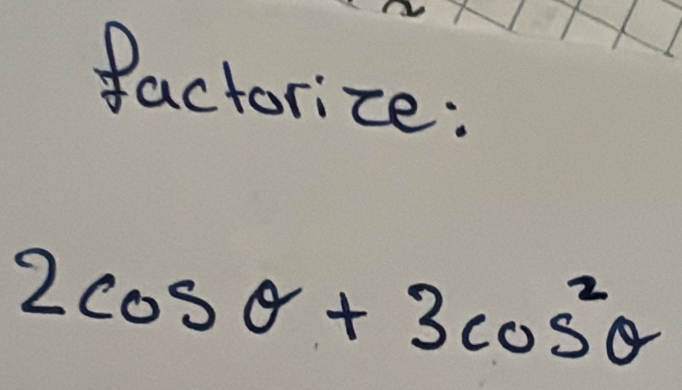 factorize:
2cos θ + 3cos²θ